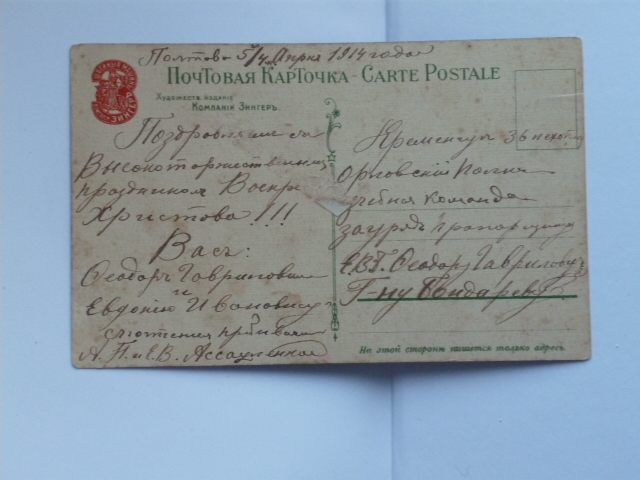 Полтова 5/4 Апреля 1914 года
ПОЧТОВАЯ КАРТОЧКА - CARTE POSTALE
Художеств. изданіе
Компаніи Зингеръ.
ЗИНГЕР
Поздровляемъ съ
Высокоторжественнымъ
праздником Воскр
Христова!!!
Васъ:
Ѳеодоръ Гавриловичъ
и
Евдокію Ивановну
съ почтеніем пребываем
А. П. и В. Ассауленко
Кременчугъ 36 пехотный
Орловскій Полкъ
учебная команда
зауряд прапорщику
Е.В.Б. Ѳеодору Гавриловичу
Г-ну Бондареву
На этой сторонѣ пишется только адресъ.